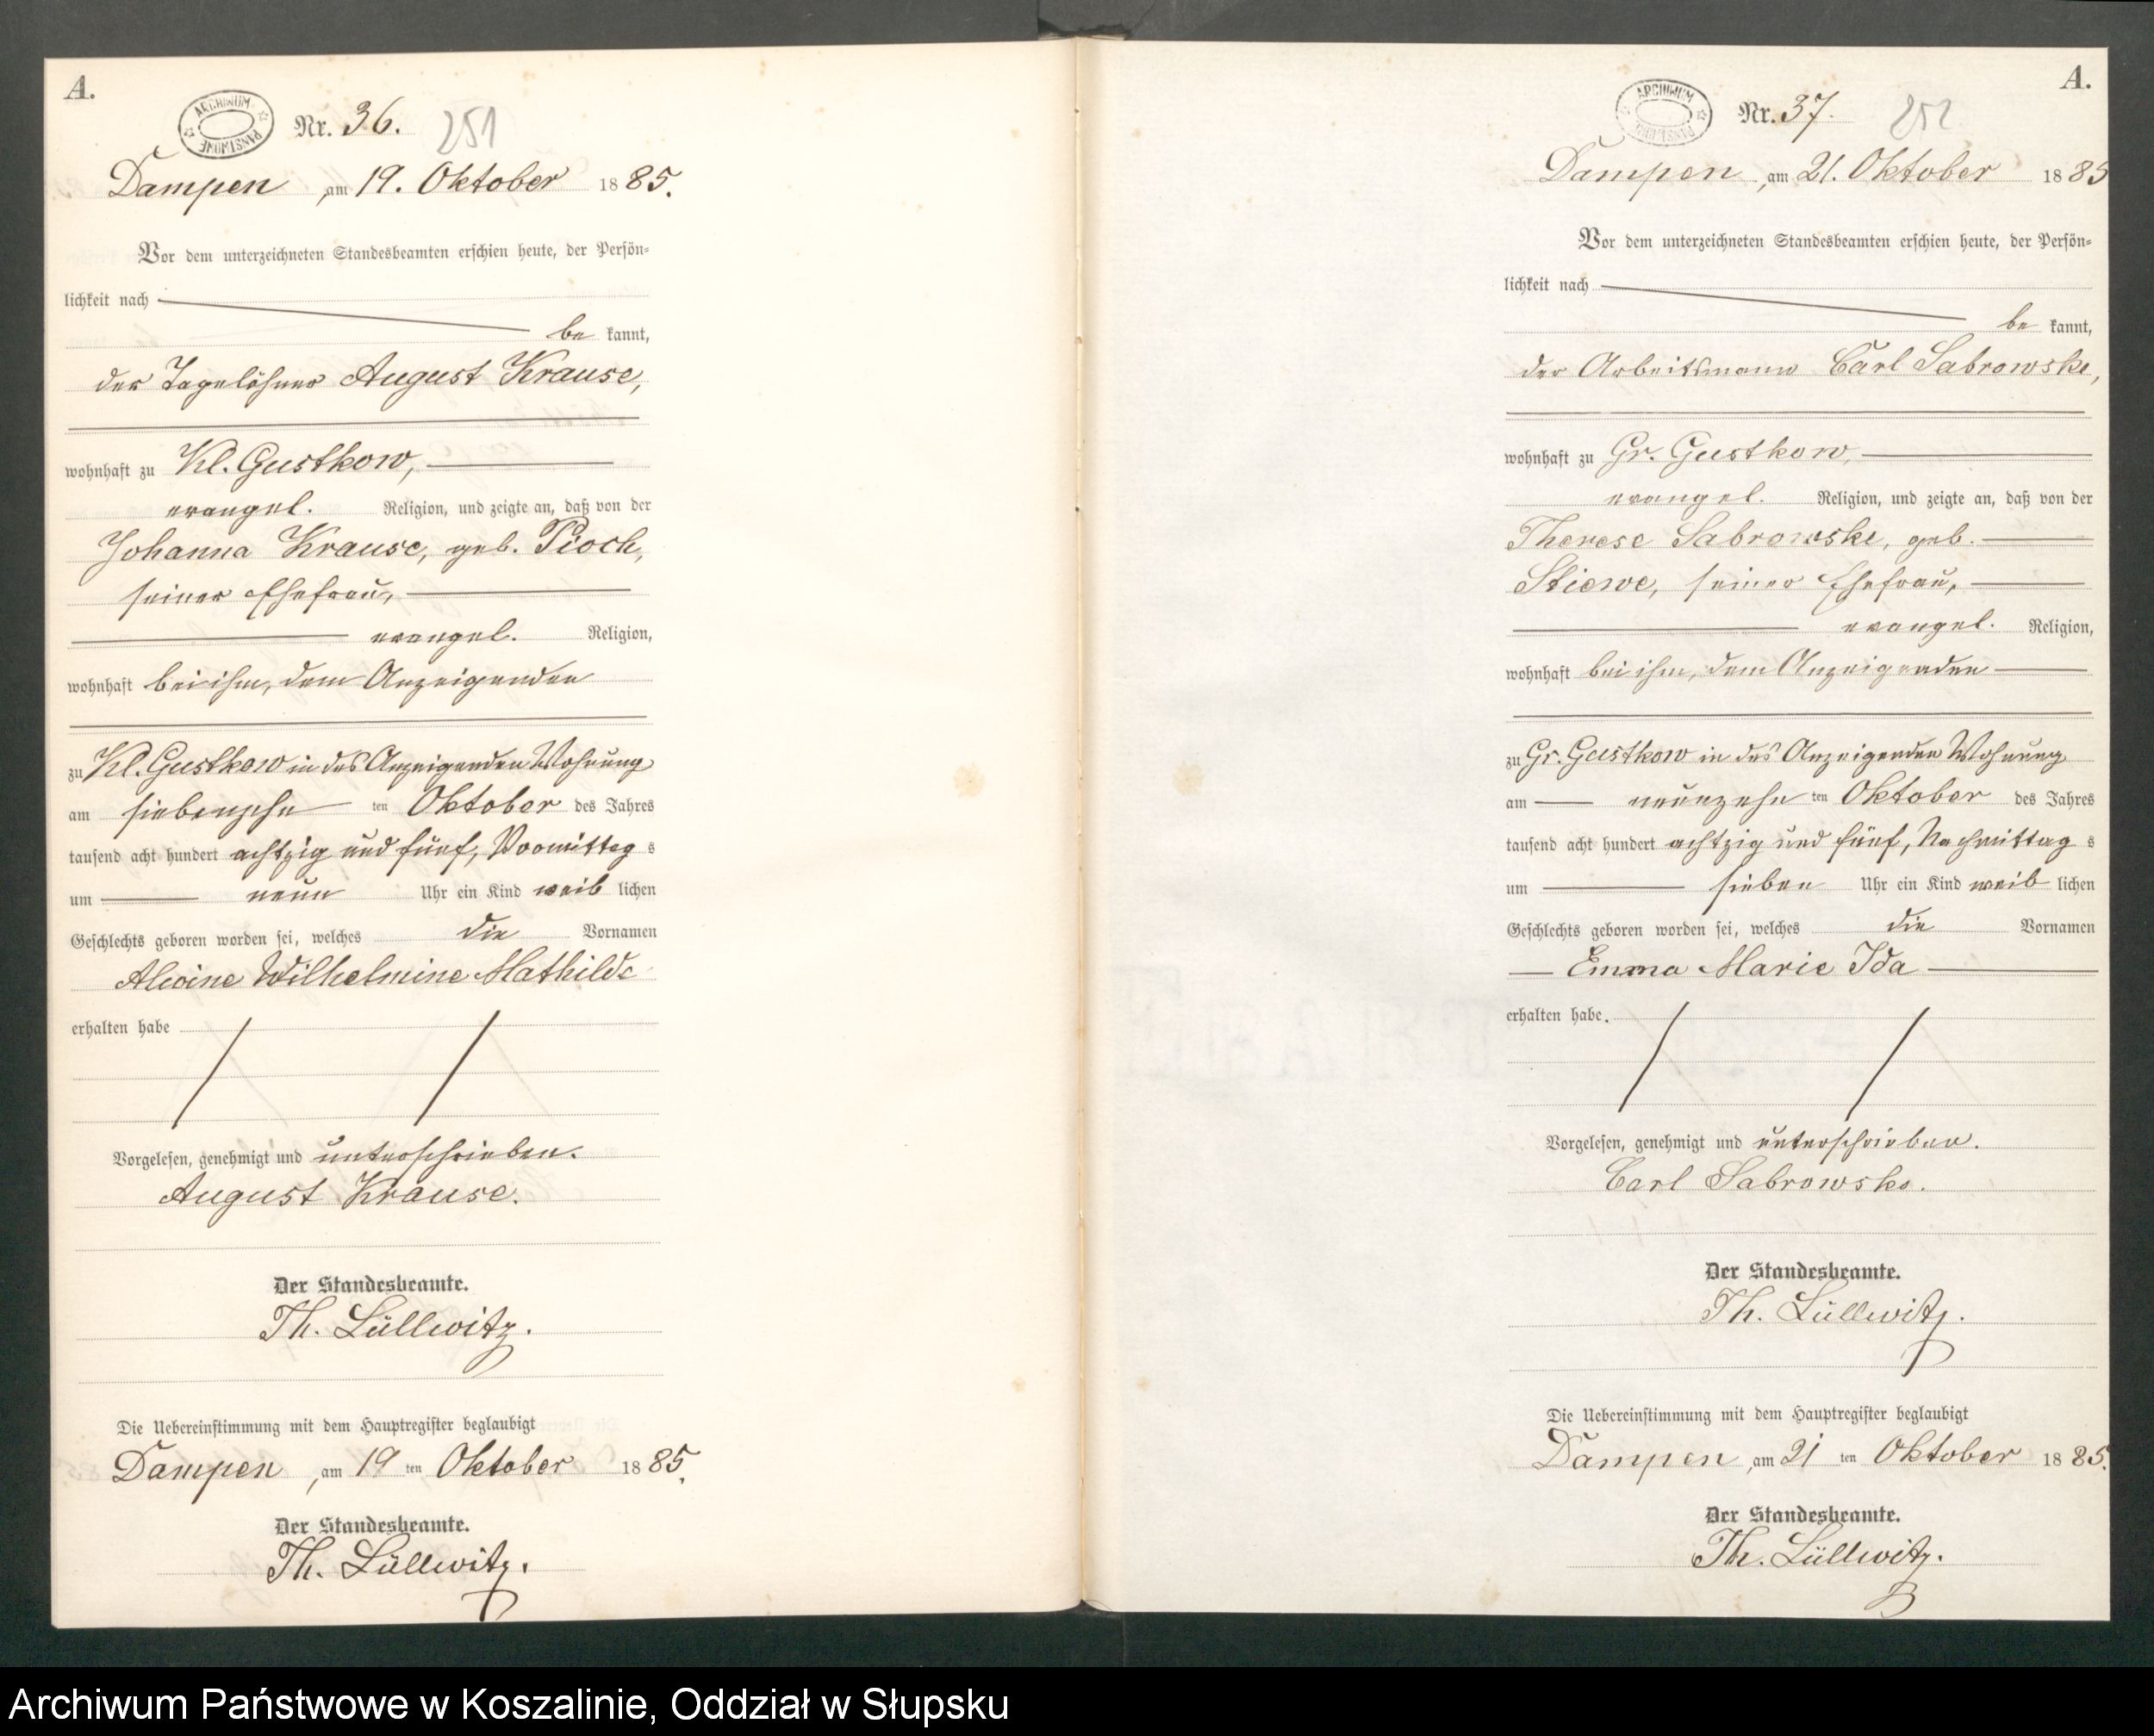 A.
ARCHIWUM PAŃSTWOWE
Nr. 36. 251
Dampen, am 19. Oktober 1885.
Vor dem unterzeichneten Standesbeamten erschien heute, der Persön-
lichkeit nach
be kannt,
der Tagelöhner August Krause,
wohnhaft zu Kl. Gustkow,
evangel. Religion, und zeigte an, daß von der
Johanna Krause, geb. Pioch,
seiner Ehefrau,
evangel. Religion,
wohnhaft bei ihm, dem Anzeigenden
zu Kl. Gustkow in des Anzeigenden Wohnung
am siebenzehn ten Oktober des Jahres
tausend acht hundert achtzig und fünf, Vormittag s
um neun Uhr ein Kind weib lichen
Geschlechts geboren worden sei, welches die Vornamen
Alwine Wilhelmine Mathilde
erhalten habe
Vorgelesen, genehmigt und unterschrieben.
August Krause.
Der Standesbeamte.
Th. Lüllwitz.
Die Uebereinstimmung mit dem Hauptregister beglaubigt
Dampen, am 19 ten Oktober 1885.
Der Standesbeamte.
Th. Lüllwitz.
A.
ARCHIWUM PAŃSTWOWE
Nr. 37. 252
Dampen, am 21. Oktober 1885
Vor dem unterzeichneten Standesbeamten erschien heute, der Persön-
lichkeit nach
be kannt,
der Arbeitsmann Carl Sabrowske,
wohnhaft zu Gr. Gustkow,
evangel. Religion, und zeigte an, daß von der
Therese Sabrowske, geb.
Stiewe, seiner Ehefrau,
evangel. Religion,
wohnhaft bei ihm, dem Anzeigenden
zu Gr. Gustkow in des Anzeigenden Wohnung
am neunzehn ten Oktober des Jahres
tausend acht hundert achtzig und fünf, Nachmittag s
um sieben Uhr ein Kind weib lichen
Geschlechts geboren worden sei, welches die Vornamen
Emma Marie Ida
erhalten habe.
Vorgelesen, genehmigt und unterschrieben.
Carl Sabrowske.
Der Standesbeamte.
Th. Lüllwitz.
Die Uebereinstimmung mit dem Hauptregister beglaubigt
Dampen, am 21 ten Oktober 1885.
Der Standesbeamte.
Th. Lüllwitz.
Archiwum Państwowe w Koszalinie, Oddział w Słupsku